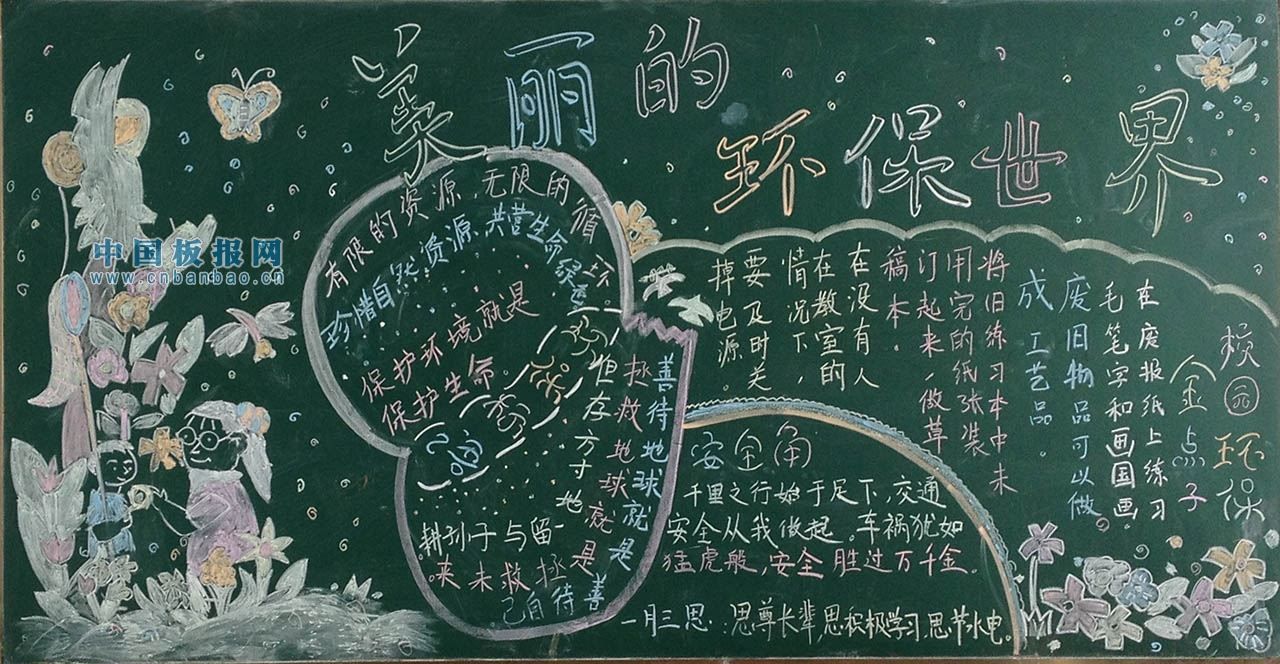 美丽的
环保世界
中国板报网
www.cnbanbao.cn
有限的资源,无限的循环。
珍惜自然资源、共营生命绿
保护环境就是
保护生命。
但存方寸地
留与子孙耕
善待地球就是善待自己
拯救地球就是拯救未来。
校园环保
金点子
在废报纸上练习
毛笔字和画国画
废旧物品可以做
成工艺品。
将旧练习本中未
用完的纸张装
订起来,做草
稿本。
在没有人
在教室的
情况下,
要及时关
掉电源。
安全角
千里之行始于足下,交通
安全从我做起。车祸犹如
猛虎般,安全胜过万千金。
一月三思:思尊长辈,思积极学习,思节水电。